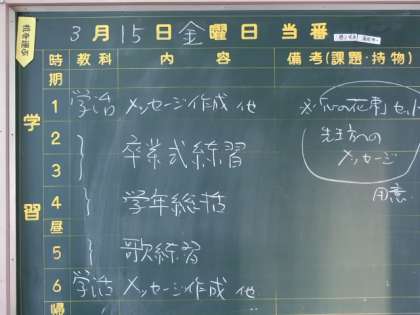 3月15日金曜日 当番
時期 教科 内容 備考(課題・持物)
学習
1 学活 メッセージ作成 他 ※「心の花束」セット
2
3 卒業式練習 先生方への
メッセージ
用意
4 学年総括
昼
5 歌練習
6 学活 メッセージ作成 他
帰